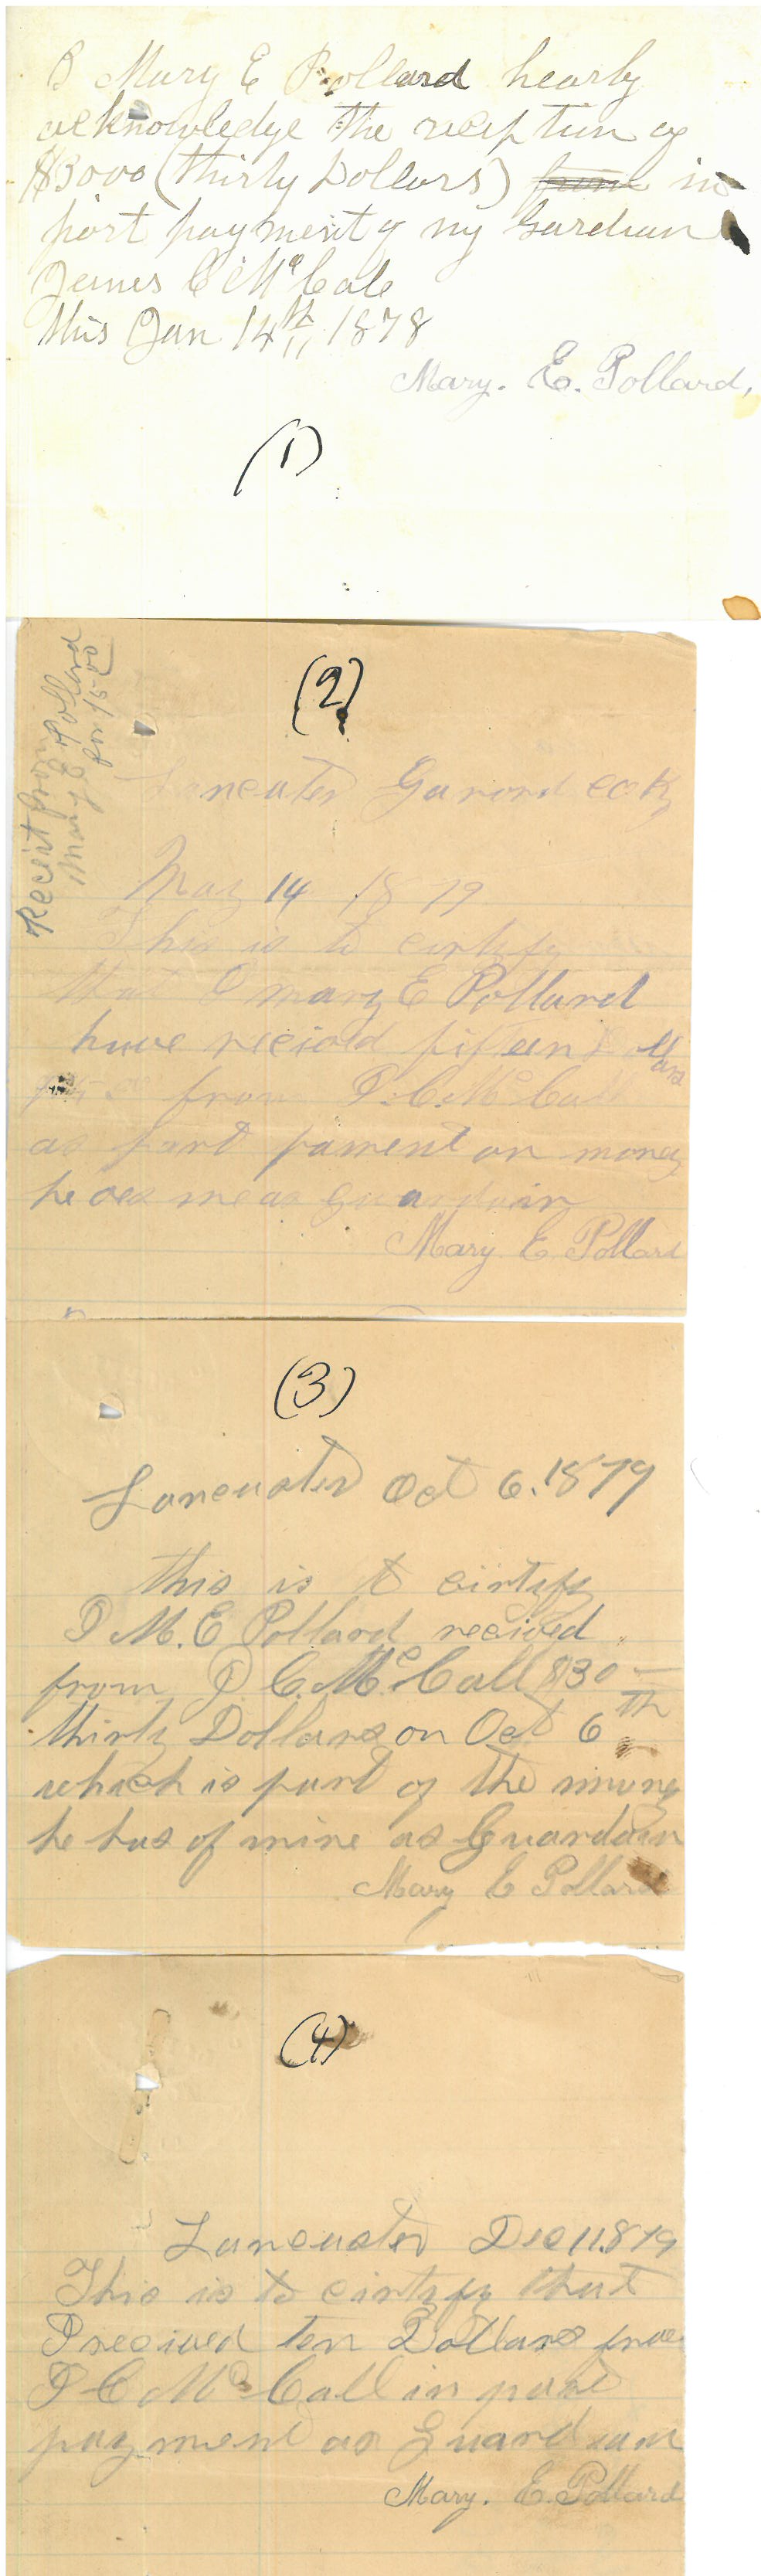 I Mary E Pollard hearby
acknowledge the reception of
$3000 (thirty Dollars) from in
part payment of my Gardian
James C McCale
this Jan 14th 1878
Mary. E. Pollard,
(1)
(2)
Recient from
Mary E Pollard
for 15.00
Lancaster Garrard co. Ky
May 14 1879
This is to cirtify
that I mary E Pollard
have recieved fifteen Dollars
from J. C. McCall
as part pament on money
he oes me as guardain
Mary E. Pollard
(3)
Lancaster Oct 6. 1879
this is to cirtify
I M. E Pollard recived
from J. C. McCall $30
thirty Dollars on Oct 6th
which is part of the muny
he has of mine as Guardain
Mary E Pollard
(4)
Lancaster Dec 1 1879
This is to cirtify that
I recived ten Dollars from
J C McCall in part
payment as Guardian
Mary. E. Pollard